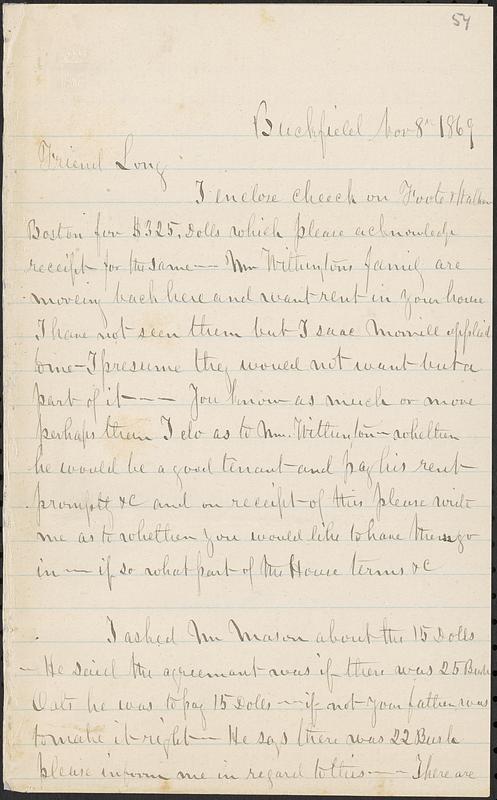 54
Buckfield Nov 8th 1869
Friend Long
I enclose cheeck on Foote & Walker
Boston for $325. Dolls which please acknowledge
receipt for the same -- Wm Withintons family are
moveing back here and want rent in your house
I have not seen them but Isaac Morrill applied
to me - I presume they would not want but a
part of it --- You know as much or more
perhaps than I do as to Wm. Withinton - whether
he would be a good tenant and pay his rent
promptly &C and on receipt of this please write
me as to whether you would like to have them go
in -- if so what part of the House terms &C
I asked Mr Mason about the 15 Dolls
- He said the agreemant was if there was 25 Bush
Oats he was to pay 15 Dolls -- if not your father was
to make it right -- He says there was 22 Bush
please inform me in regard to this --- There are